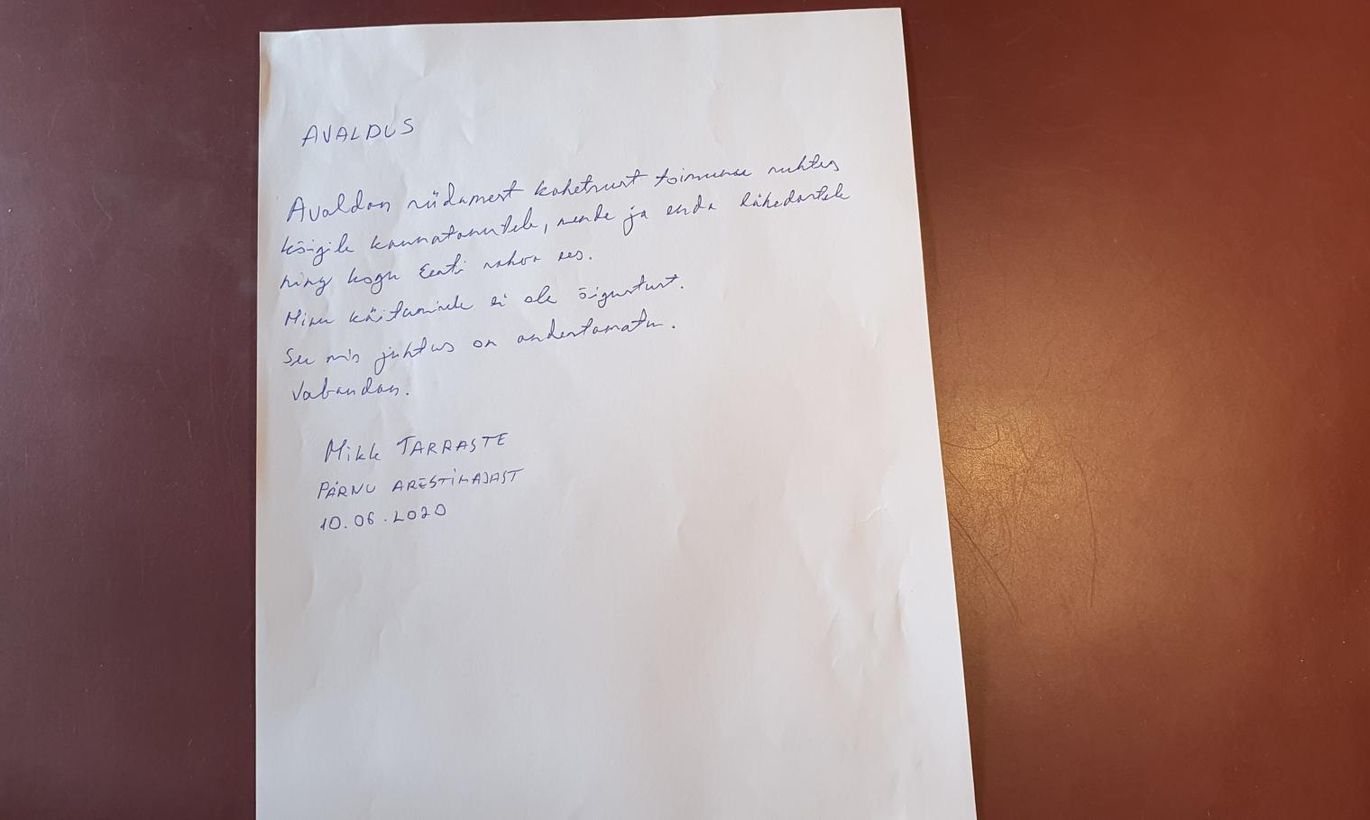 AVALDUS
Avaldan südamest kahetsust toimunu suhtes
kõigile kannatanutele, nende ja enda lähedastele
ning kogu Eesti rahva ees.
Minu käitumisele ei ole õigustust.
See mis juhtus on andestamatu.
Vabandan.
Mikk TARRASTE
PÄRNU ARESTIMAJAST
10.06.2020